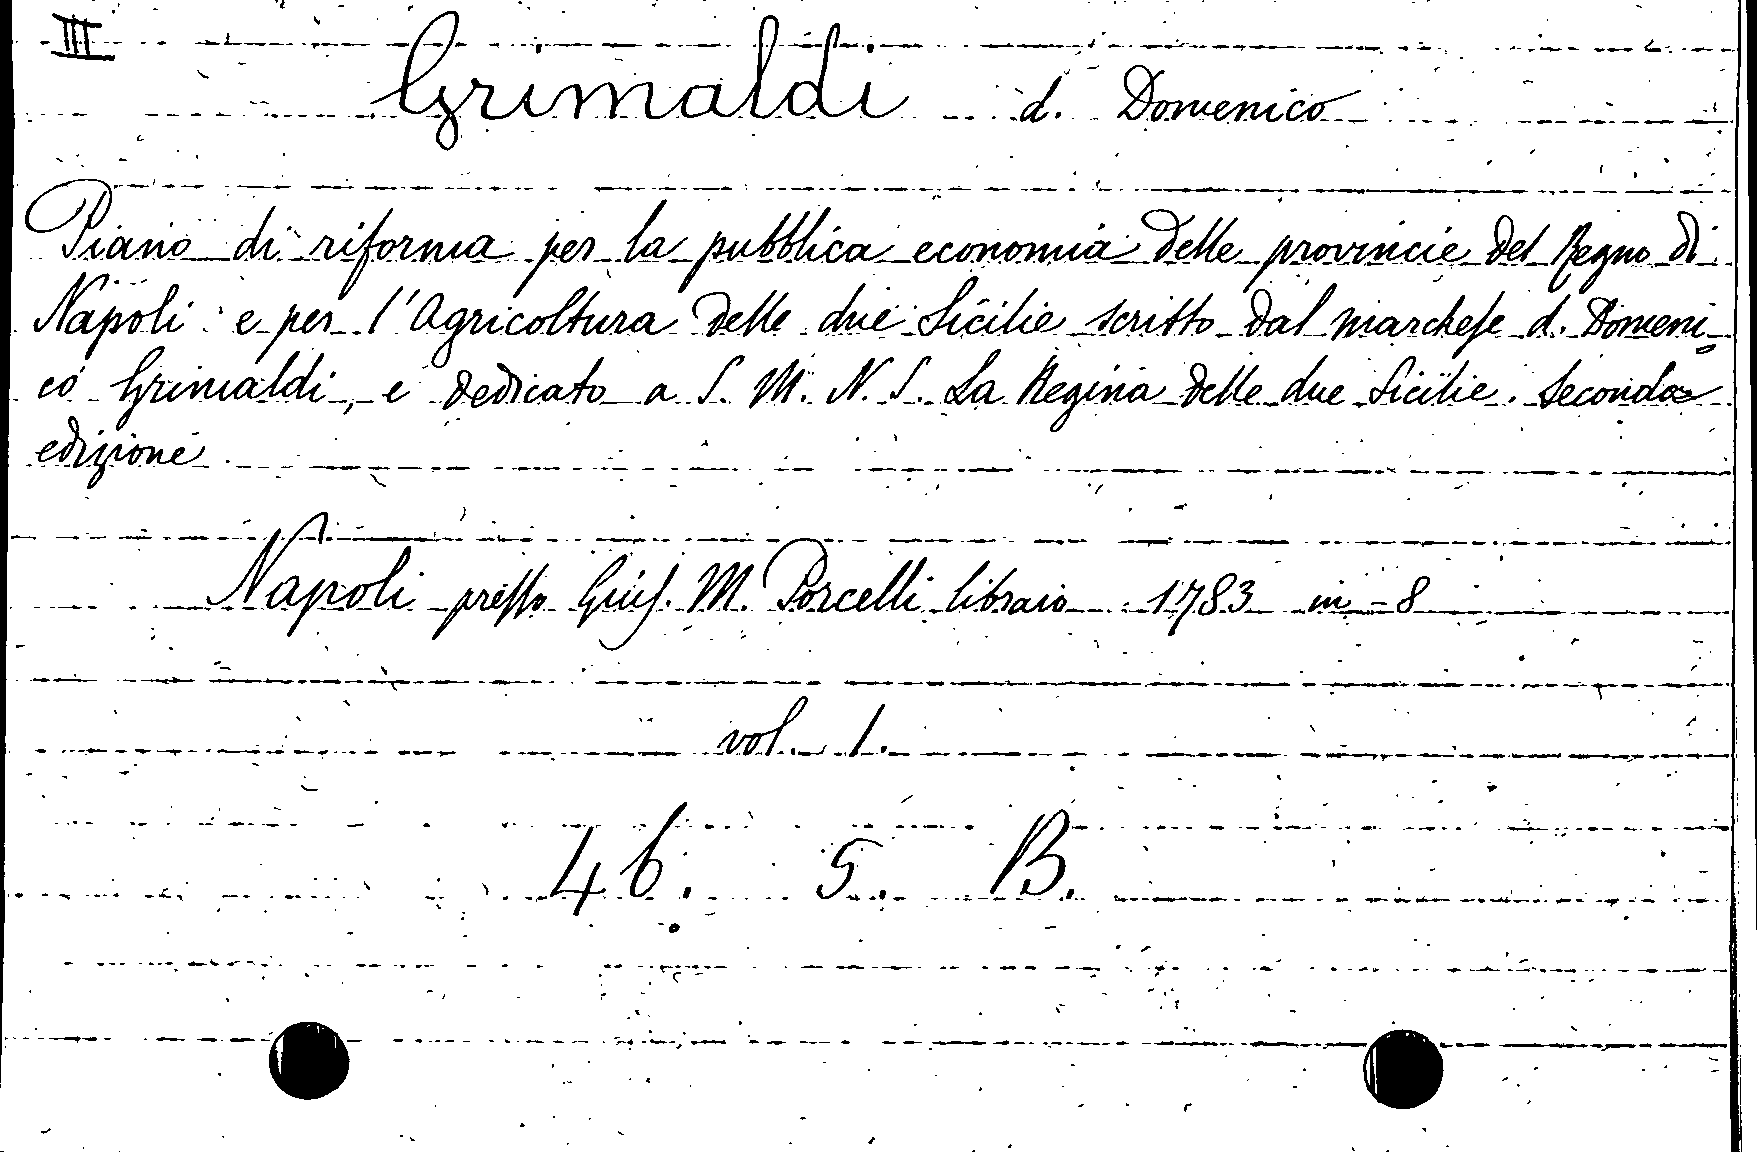 III
Grimaldi d. Domenico
Piano di riforma per la pubblica economia delle provincie del Regno di
Napoli e per l'Agricoltura delle due Sicilie scritto dal marchese d. Domeni-
co Grimaldi, e dedicato a S. M. N. S. La Regina delle due Sicilie. Seconda
edizione
Napoli presso Gius. M. Porcelli libraio 1783 in-8
vol. 1.
46. 5. B.